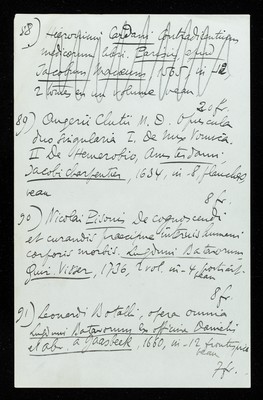 88) Hieronimi Cardani Contradicentium
medicorum libri. Parisiis, apud
Jacobum Macaeum, 1565, in-12
2 tomes en un volume veau
20 fr.
89) Augerii Clutii M. D. Opuscula
duo singularia I. De Nuce Vomica.
II De Hemerobio, Amsterdami,
Jacobi Charpentier, 1634, in-8 planches
veau
8 fr.
90) Nicolai Pisonis De cognoscendi
et curandis praecipue internis humani
corporis morbis. Lugduni Batavorum
Guil. Visser, 1736, 2 vol. in-4, portrait
veau
8 fr.
91) Leonardi Botalli, opera omnia
Lugduni Batavorum Ex officina Danielis
et Abr. a Gaasbeek, 1660, in-12 frontispice
veau
7 fr.